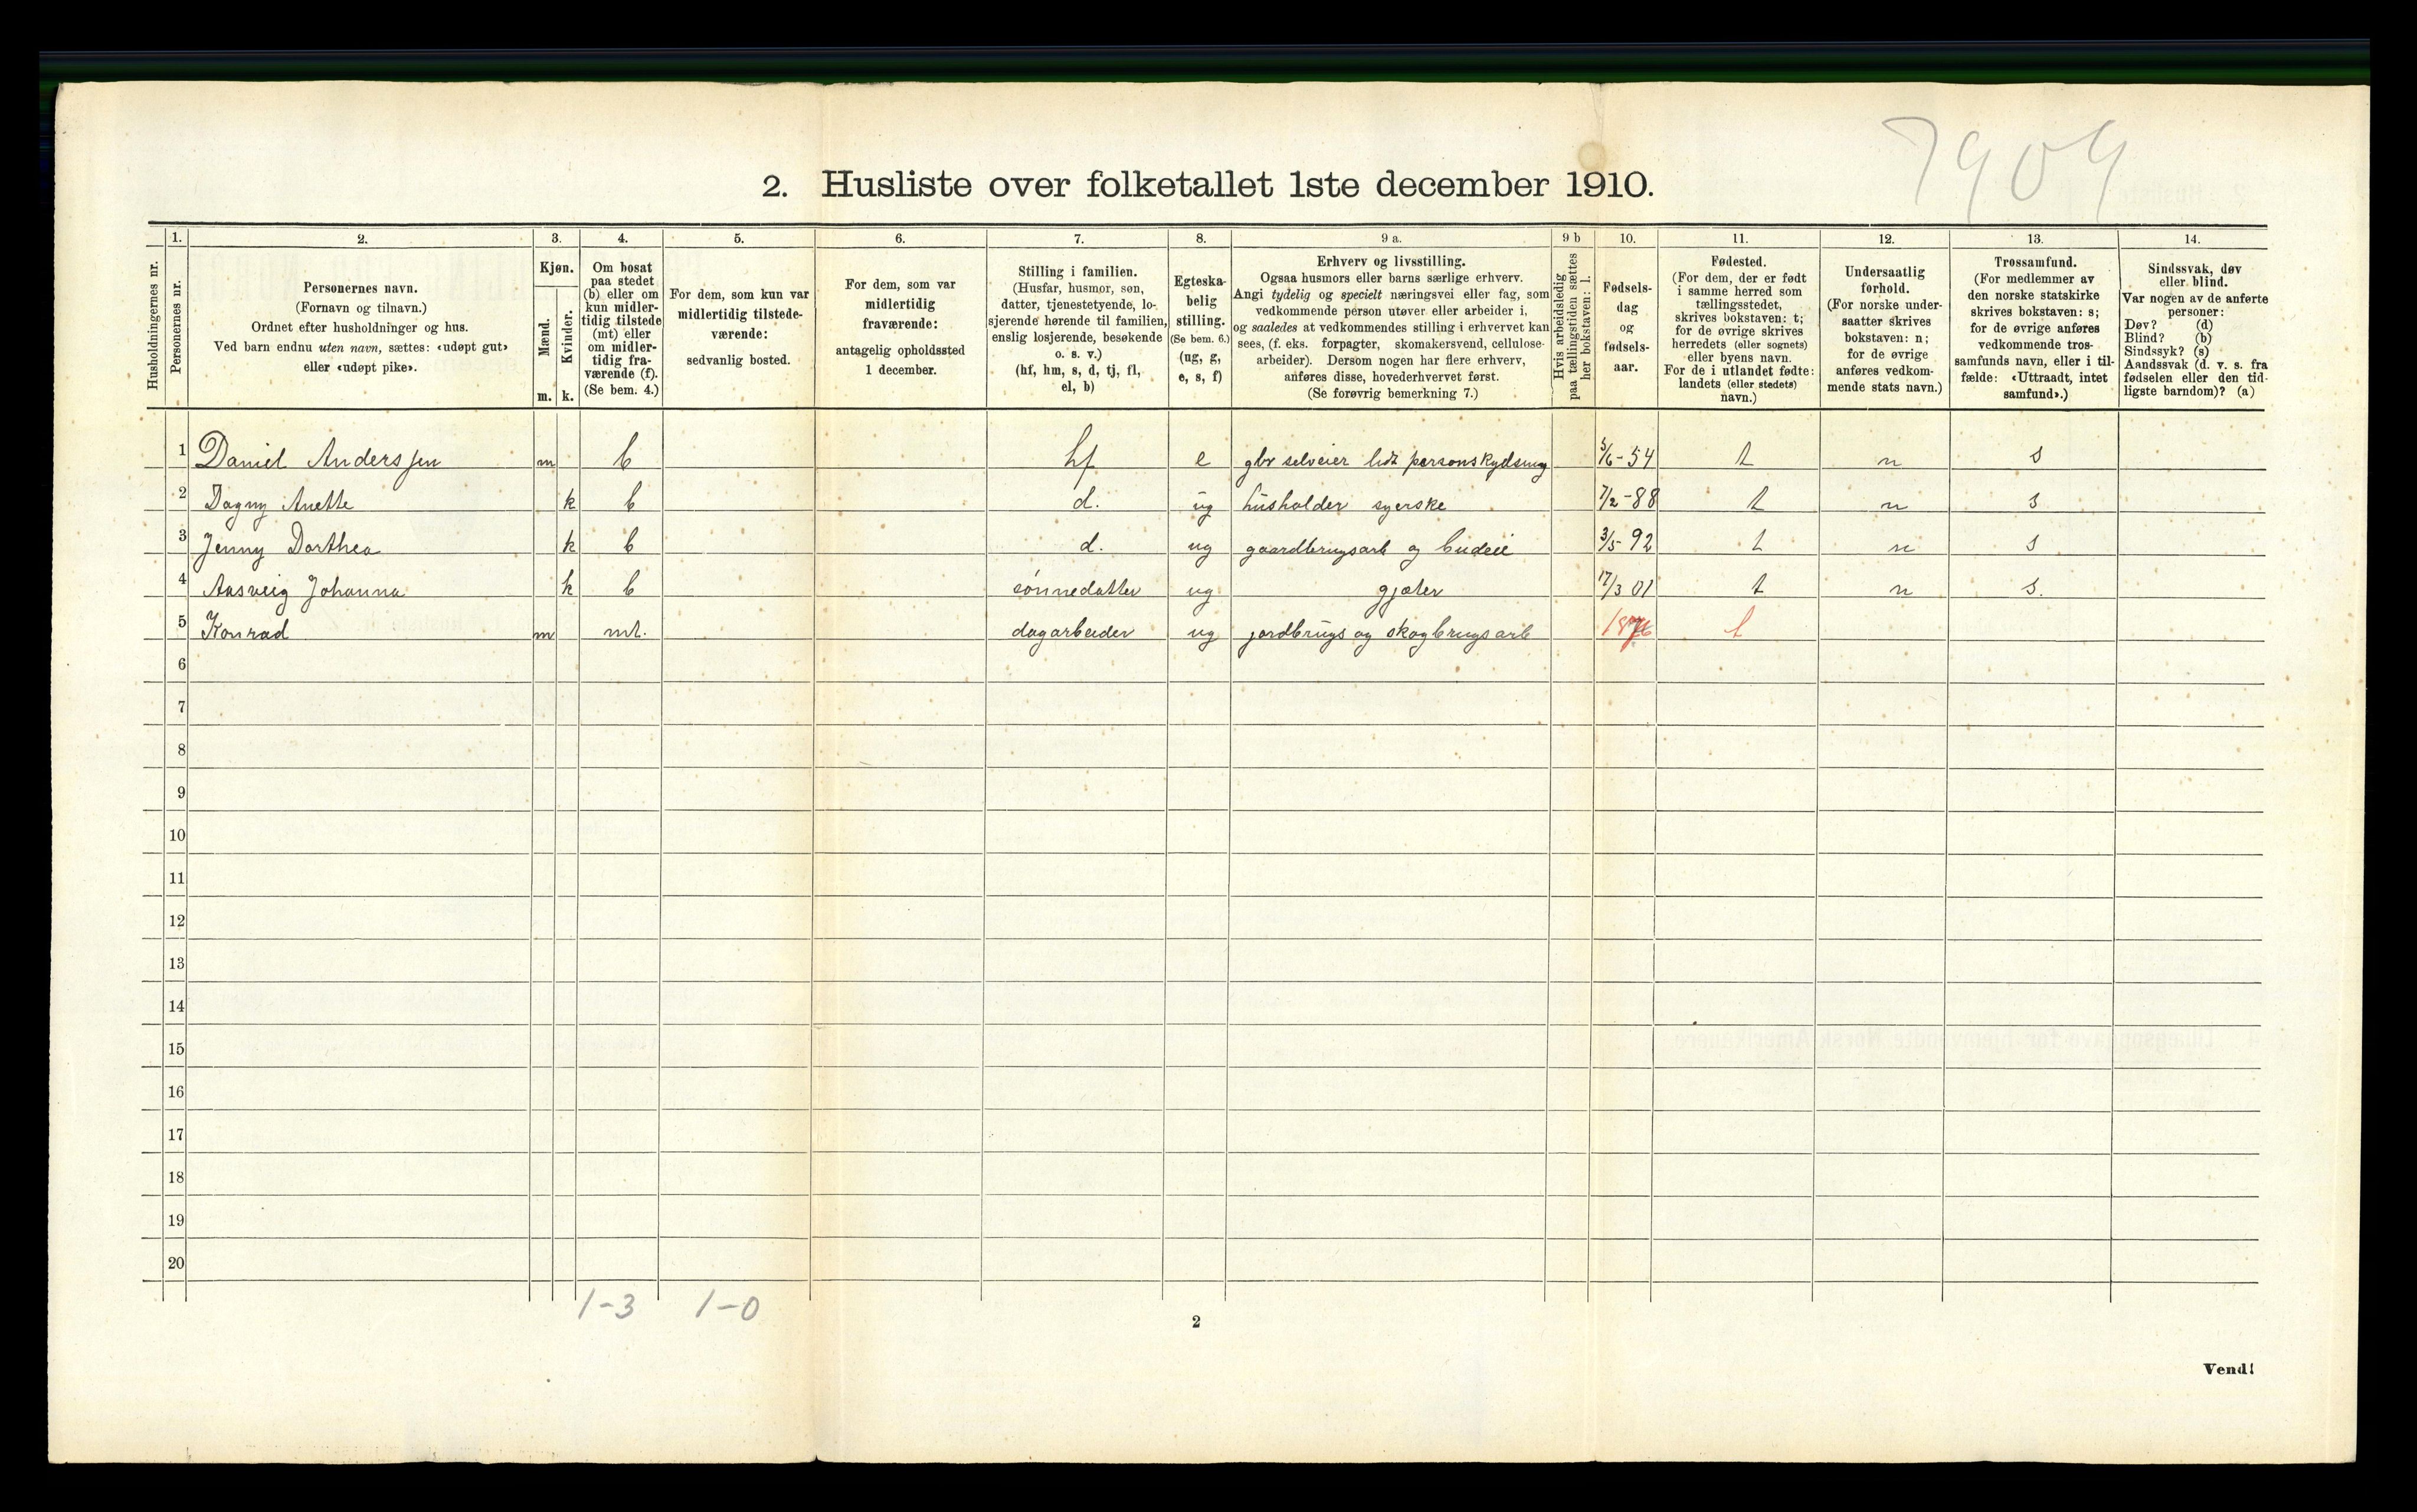 7909
2. Husliste over folketallet 1ste december 1910.
1. 2. 3. 4. 5. 6. 7. 8. 9 a. 9 b 10. 11. 12. 13. 14.
Husholdningernes nr.
Personernes nr.
Personernes navn.
(Fornavn og tilnavn.)
Ordnet efter husholdninger og hus.
Ved barn endnu uten navn, sættes: «udøpt gut»
eller «udøpt pike».
Kjøn.
Mænd.
Kvinder.
m. k.
Om bosat
paa stedet
(b) eller om
kun midler-
tidig tilstede
(mt) eller
om midler-
tidig fra-
værende (f).
(Se bem. 4.)
For dem, som kun var
midlertidig tilstede-
værende:
sedvanlig bosted.
For dem, som var
midlertidig
fraværende:
antagelig opholdssted
1 december.
Stilling i familien.
(Husfar, husmor, søn,
datter, tjenestetyende, lo-
sjerende hørende til familien,
enslig losjerende, besøkende
o. s. v.)
(hf, hm, s, d, tj, fl,
el, b)
Egteska-
belig
stilling.
(Se bem. 6.)
(ug, g,
e, s, f)
Erhverv og livsstilling.
Ogsaa husmors eller barns særlige erhverv.
Angi tydelig og specielt næringsvei eller fag, som
vedkommende person utøver eller arbeider i,
og saaledes at vedkommendes stilling i erhvervet kan
sees, (f. eks. forpagter, skomakersvend, cellulose-
arbeider). Dersom nogen har flere erhverv,
anføres disse, hovederhvervet først.
(Se forøvrig bemerkning 7.)
Hvis arbeidsledig
paa tællingstiden sættes
her bokstaven: l.
Fødsels-
dag
og
fødsels-
aar.
Fødested.
(For dem, der er født
i samme herred som
tællingsstedet,
skrives bokstaven: t;
for de øvrige skrives
herredets (eller sognets)
eller byens navn.
For de i utlandet fødte:
landets (eller stedets)
navn.)
Undersaatlig
forhold.
(For norske under-
saatter skrives
bokstaven: n;
for de øvrige
anføres vedkom-
mende stats navn.)
Trossamfund.
(For medlemmer av
den norske statskirke
skrives bokstaven: s;
for de øvrige anføres
vedkommende tros-
samfunds navn, eller i til-
fælde: «Uttraadt, intet
samfund».)
Sindssvak, døv
eller blind.
Var nogen av de anførte
personer:
Døv? (d)
Blind? (b)
Sindssyk? (s)
Aandssvak (d. v. s. fra
fødselen eller den tid-
ligste barndom)? (a)
1 Daniel Anderssen m b hf e gbr selveier lidt personskydsning 5/6-54 t n s
2 Dagny Anette k b d. ug husholder syerske 7/2-88 t n s
3 Jenny Dorthea k b d. ug gaardbrugsarb og budeie 3/5-92 t n s
4 Aasveig Johanna k b sönnedatter ug gjæter 17/3 01 t n s.
5 Konrad m mt. dagarbeider ug jordbrugs og skogbrugsarb t
6
7
8
9
10
11
12
13
14
15
16
17
18
19
20
1-3 1-0
2
Vend!